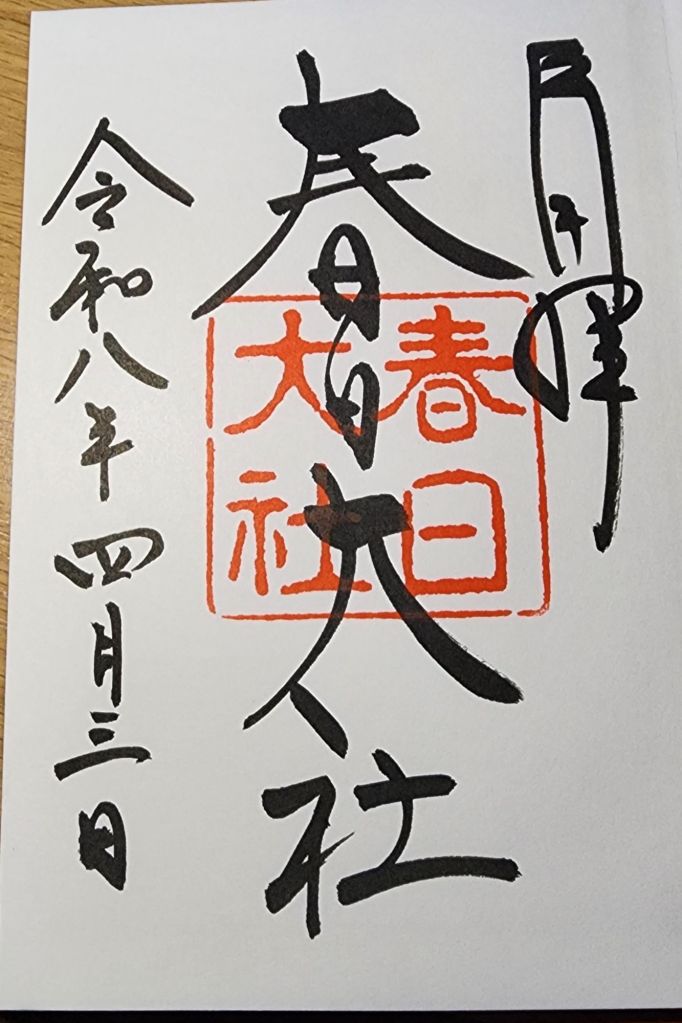 春日大社
令和八年四月三日
春日
大社